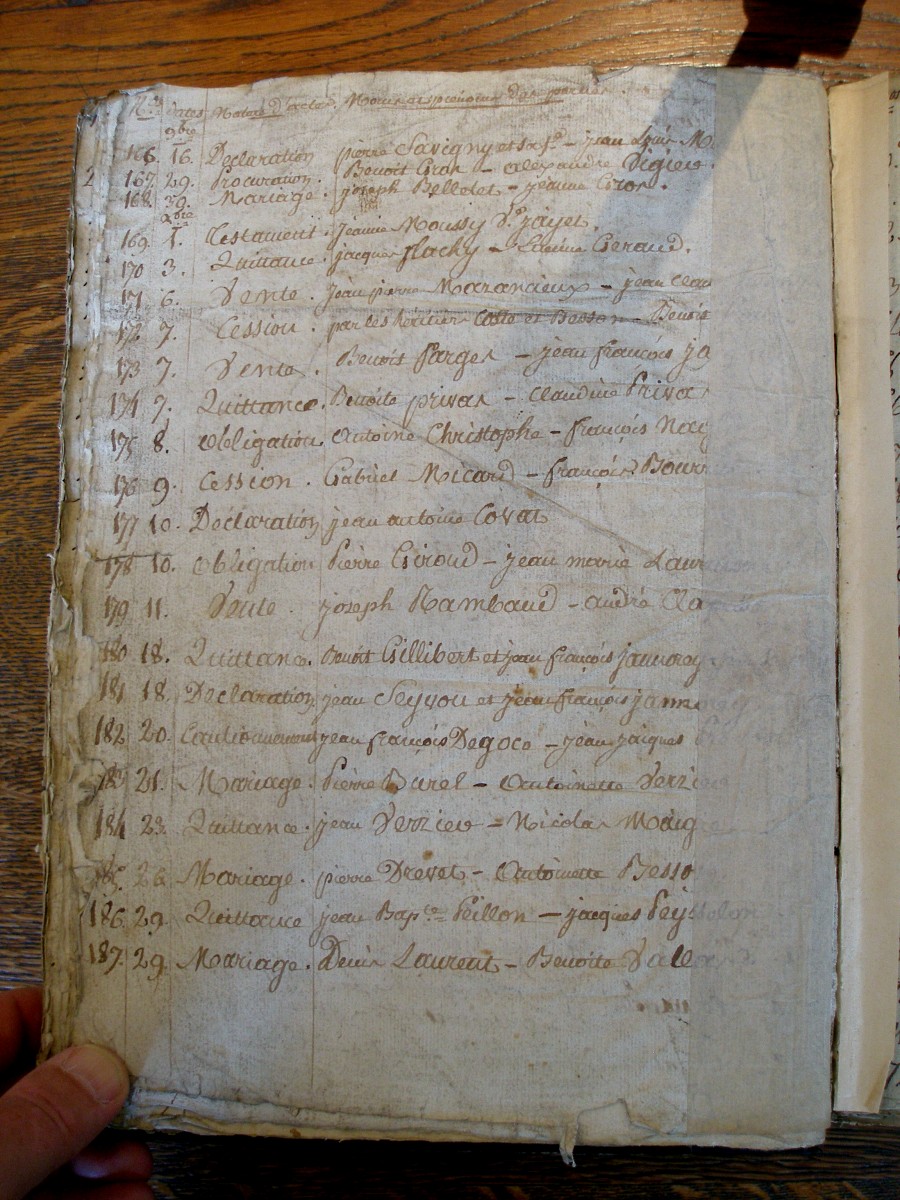 N.os dates Nature d'actes Noms et prénoms des parties
9bre
166. 16. Declaration pierre Savigny et sa f.e – jean Louis M
2 167. 29. Procuration. Benoit Giron – alexandre Vigier
168. 30. Mariage. joseph Bellolet – jeanne Giron.
xbre
169. 1. Testament. jeanne Moussy V.e jayet.
170 3. Quittance. jacques flachy – Geraud.
171 6. Vente. jean pierre Marancieux – jean Clau
172 7. Cession. par les héritiers Coste et Besson – Benoit
173 7. Vente. Benoit farges – jean françois ja
174 7. Quittance. Benoite privas – Claudine Priva
175 8. obligation Antoine Christophe – françois
176 9. Cession. Gabriel Micard – françois Bour
177 10. Declaration jean antoine Covat
178 10. obligation Pierre Giroud – jean marie Laur
179 11. Vente. joseph Rambaud – andré Cla
180 18. Quittance. Benoit Gillibert et jean françois jannorey
181 18. Declaration jean Seyvou et jean françois janno
182 20. Cautionnement jean françois Degoco – jean jacques
183 21. Mariage. Pierre Burel – Antoinette Verzieu
184 23. Quittance. jean Verzieu – Nicolas Maig
185. 26 Mariage. pierre Drevet – Antoinette Besso
186 29. Quittance jean Bap.te Peillon – jacques Peyssolon
187. 29. Mariage. Denis Laurent – Benoite Vale